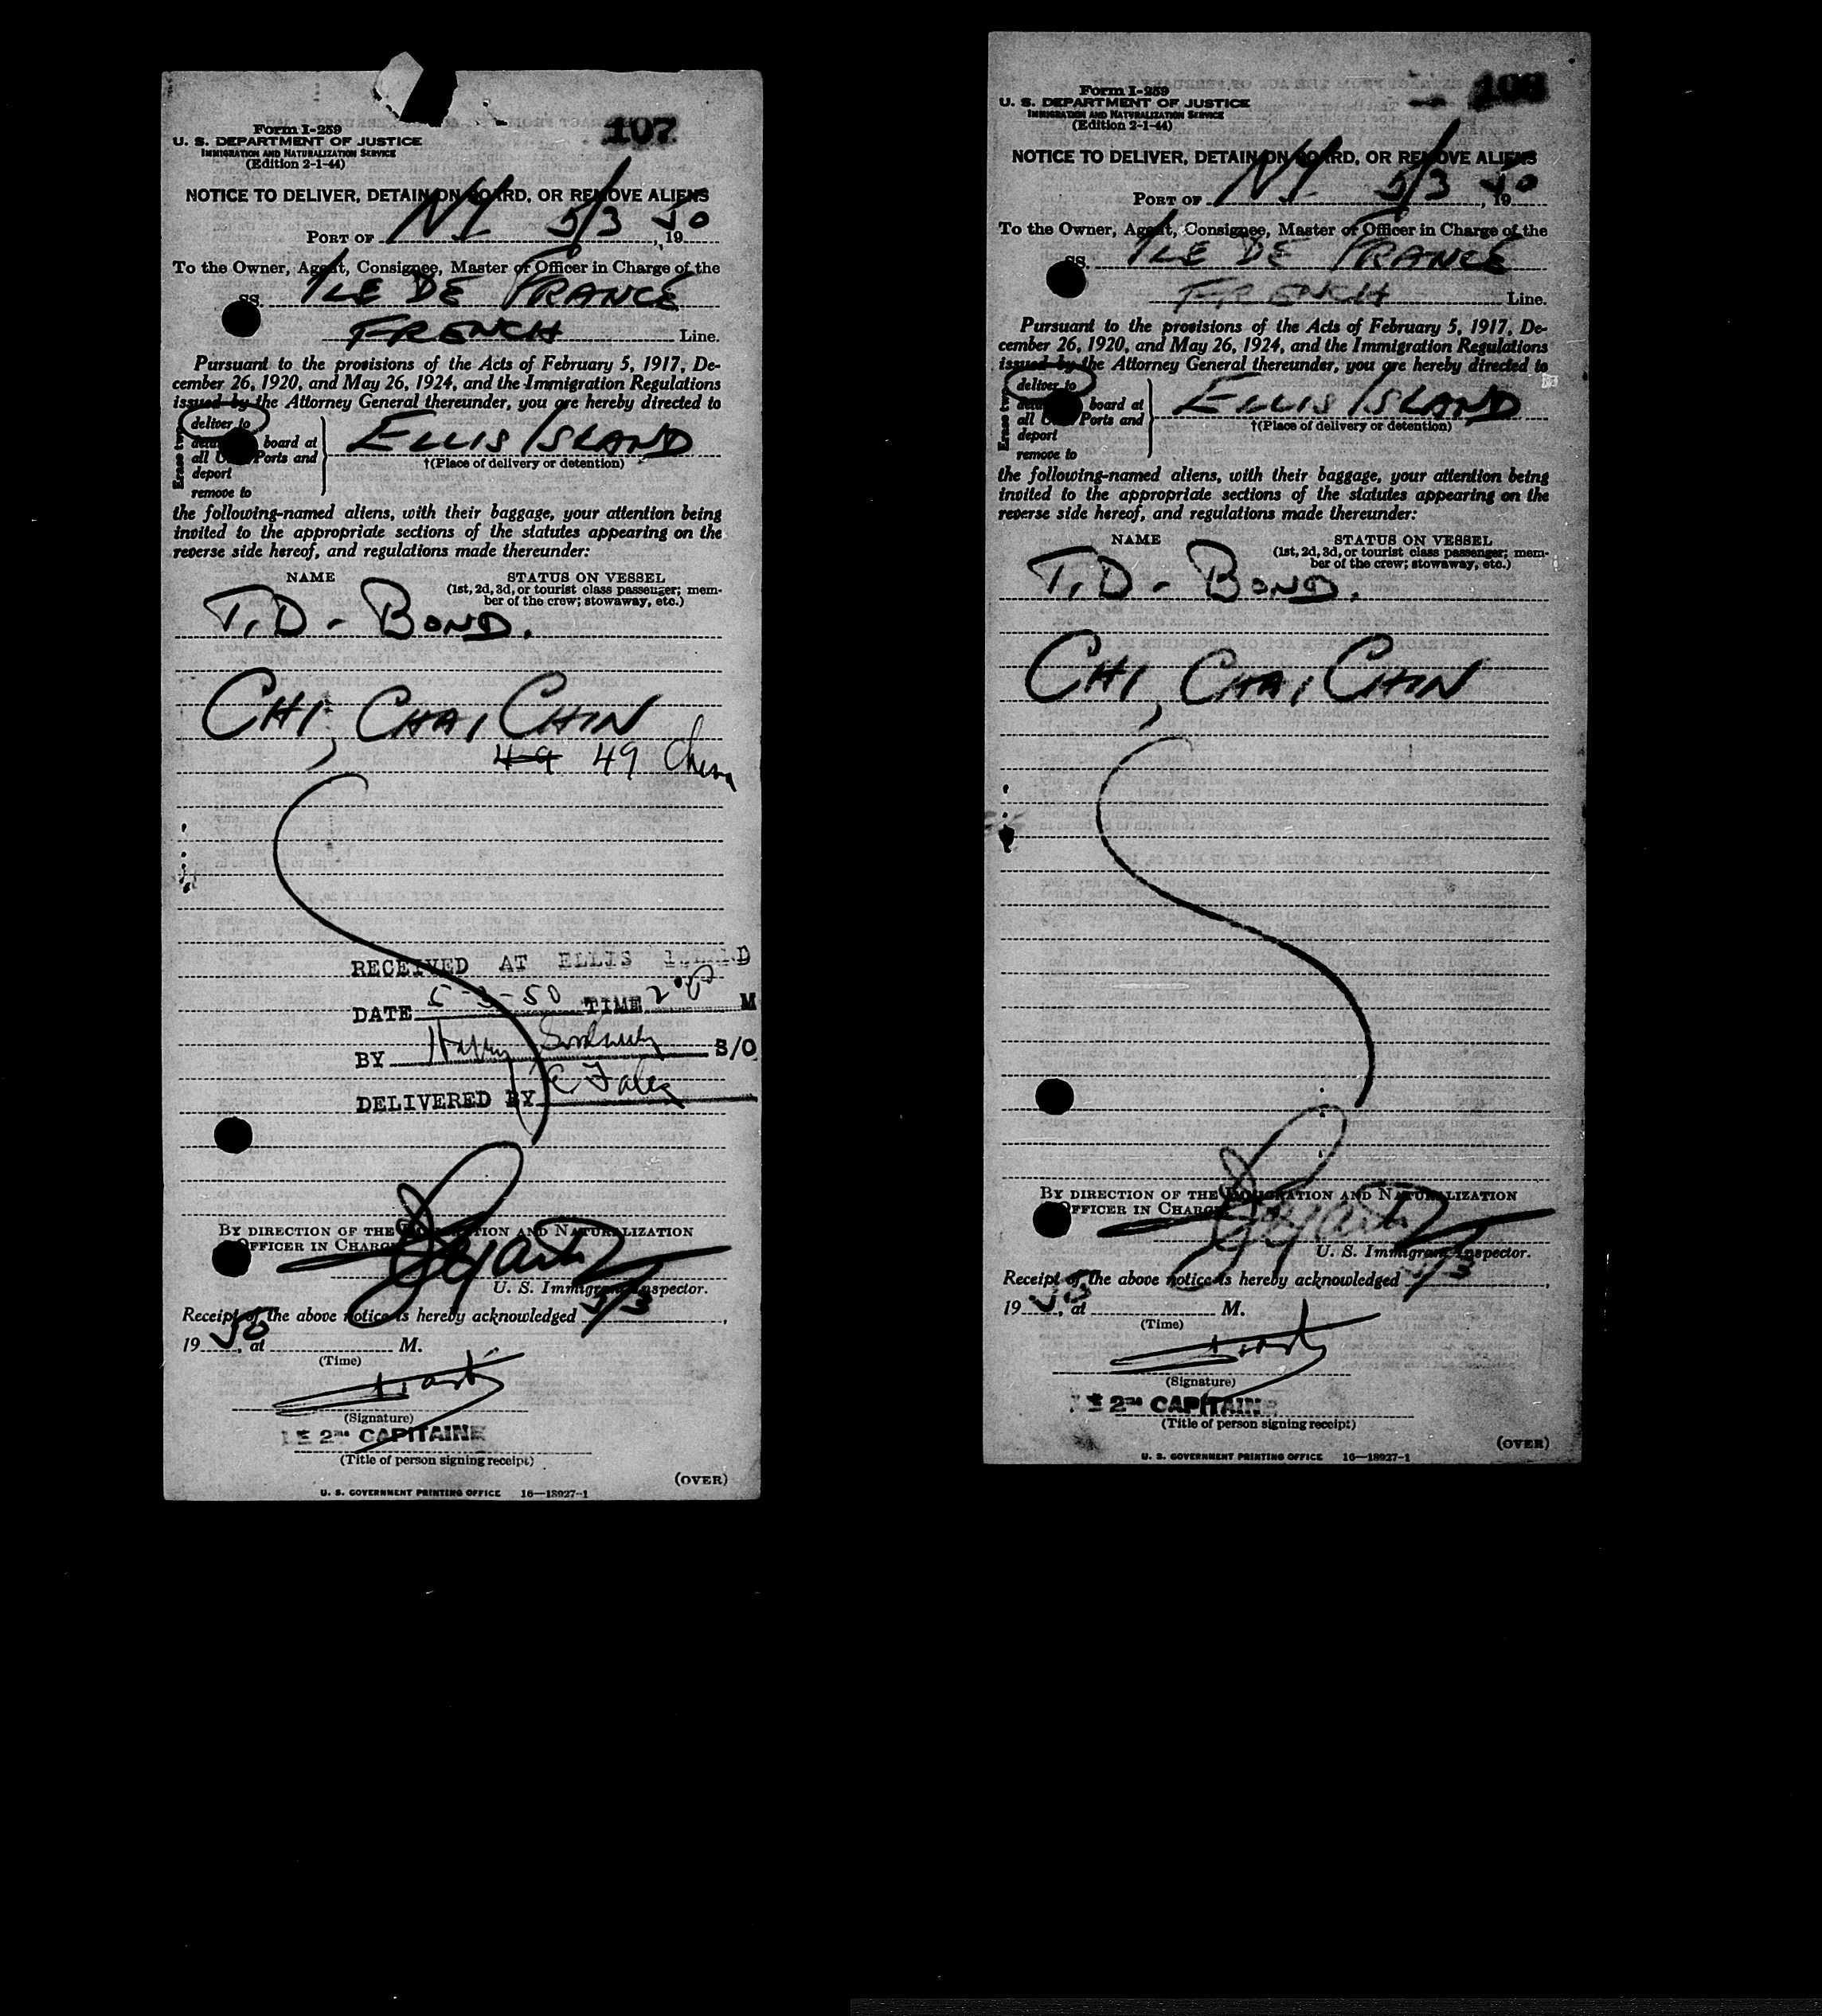 107
Form I-259
U. S. DEPARTMENT OF JUSTICE
IMMIGRATION AND NATURALIZATION SERVICE
(Edition 2-1-44)
NOTICE TO DELIVER, DETAIN ON BOARD, OR REMOVE ALIENS
PORT OF NY 5/3, 19 50
To the Owner, Agent, Consignee, Master or Officer in Charge of the
SS. ILE DE FRANCE
FRENCH Line.
Pursuant to the provisions of the Acts of February 5, 1917, De-
cember 26, 1920, and May 26, 1924, and the Immigration Regulations
issued by the Attorney General thereunder, you are hereby directed to
Erase two
deliver to
board at
all Ports and
deport
remove to
ELLIS ISLAND
†(Place of delivery or detention)
the following-named aliens, with their baggage, your attention being
invited to the appropriate sections of the statutes appearing on the
reverse side hereof, and regulations made thereunder:
NAME STATUS ON VESSEL
(1st, 2d, 3d, or tourist class passenger; mem-
ber of the crew; stowaway, etc.)
T.D - BOND.
CHI, CHAI CHIN
49 49 China
RECEIVED AT ELLIS ISLAND
DATE 5-3-50 TIME M
BY Harry S/O
DELIVERED BY
BY DIRECTION OF THE IMMIGRATION AND NATURALIZATION
OFFICER IN CHARGE
U. S. Immigrant Inspector.
Receipt of the above notice is hereby acknowledged 5/3,
19 50, at M.
(Time)
(Signature)
LE 2me CAPITAINE
(Title of person signing receipt)
(OVER)
U. S. GOVERNMENT PRINTING OFFICE 16—18927-1
108
Form I-259
U. S. DEPARTMENT OF JUSTICE
IMMIGRATION AND NATURALIZATION SERVICE
(Edition 2-1-44)
NOTICE TO DELIVER, DETAIN ON BOARD, OR REMOVE ALIENS
PORT OF NY 5/3, 19 50
To the Owner, Agent, Consignee, Master or Officer in Charge of the
SS. ILE DE FRANCE
FRENCH Line.
Pursuant to the provisions of the Acts of February 5, 1917, De-
cember 26, 1920, and May 26, 1924, and the Immigration Regulations
issued by the Attorney General thereunder, you are hereby directed to
Erase two
deliver to
board at
all Ports and
deport
remove to
ELLIS ISLAND
†(Place of delivery or detention)
the following-named aliens, with their baggage, your attention being
invited to the appropriate sections of the statutes appearing on the
reverse side hereof, and regulations made thereunder:
NAME STATUS ON VESSEL
(1st, 2d, 3d, or tourist class passenger; mem-
ber of the crew; stowaway, etc.)
T.D - BOND.
CHI, CHAI CHIN
BY DIRECTION OF THE IMMIGRATION AND NATURALIZATION
OFFICER IN CHARGE
U. S. Immigrant Inspector.
Receipt of the above notice is hereby acknowledged 5/3,
19 50, at M.
(Time)
(Signature)
LE 2me CAPITAINE
(Title of person signing receipt)
(OVER)
U. S. GOVERNMENT PRINTING OFFICE 16—18927-1